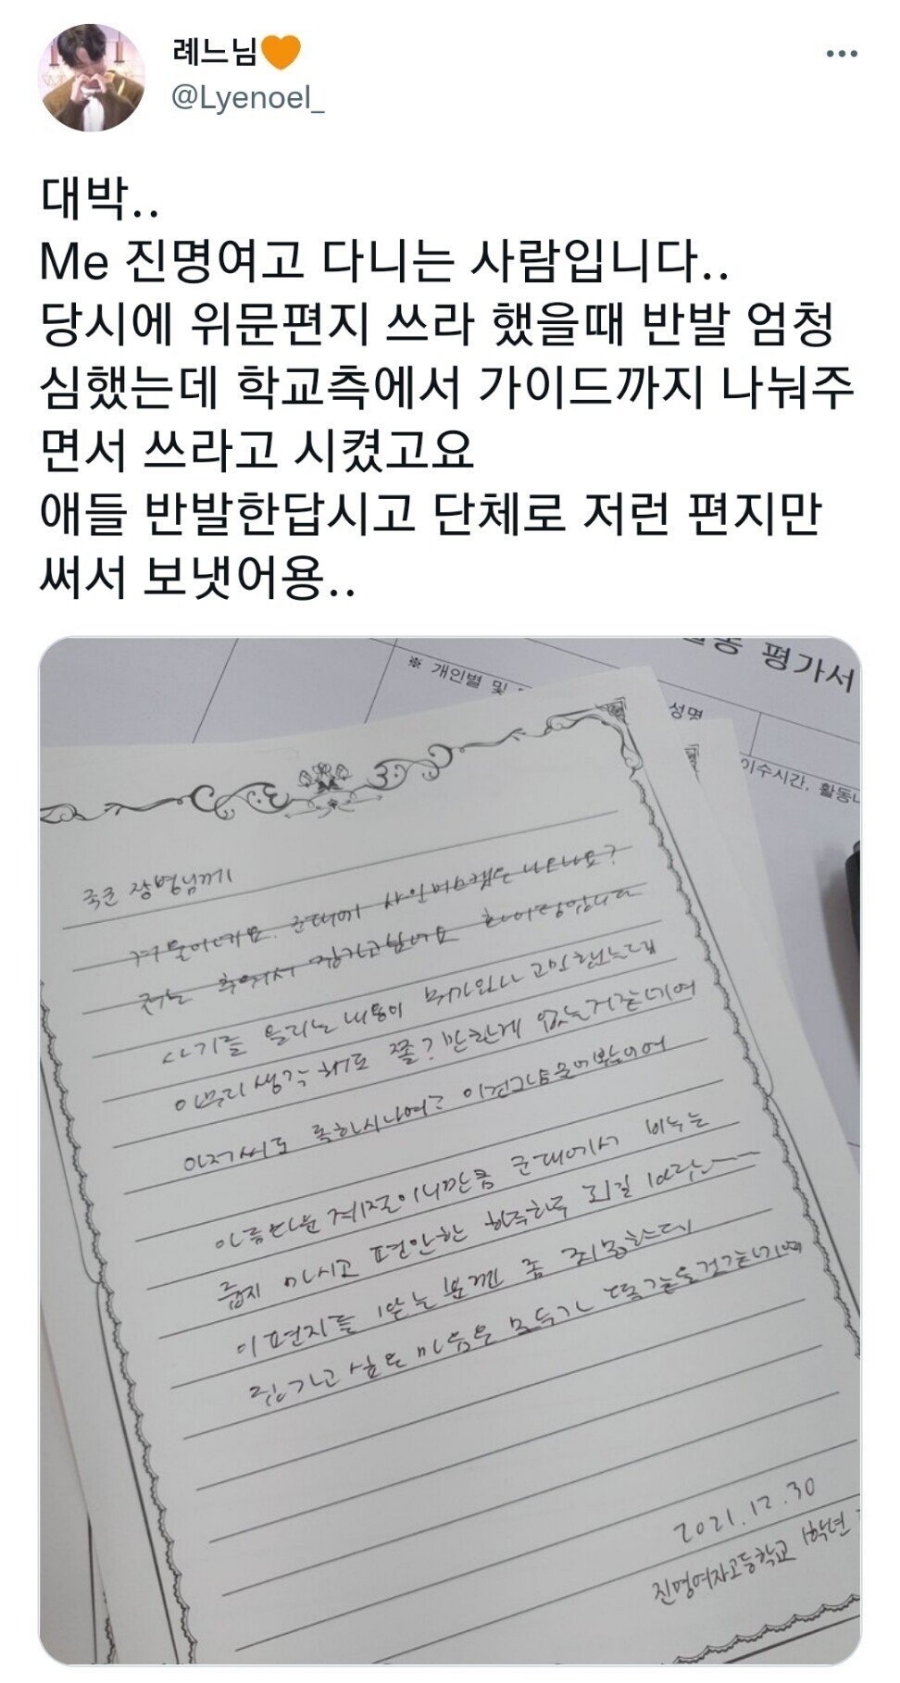 례느님🧡
@Lyenoel_
대박..
Me 진명여고 다니는 사람입니다..
당시에 위문편지 쓰라 했을때 반발 엄청
심했는데 학교측에서 가이드까지 나눠주
면서 쓰라고 시켰고요
애들 반발한답시고 단체로 저런 편지만
써서 보냇어용..
평가서
※ 개인별 및
성명
이수시간, 활동
국군 장병님께
겨울이네요. 군대에 샤인머스캣은 나오나요?
저는 추워서 집가고싶네요 화이팅입니다
사기를 올리는 내용이 뭐가있나 고민했는데
아무리 생각해도 쫄? 만한게 없는거같네여
아름다운 계절이니만큼 군대에서 비누는
줍지 마시고 편안한 하루하루 되길 바라는
이 편지를 받는 분껜 좀 죄송한데
집가고 싶은 마음은 모두가 똑같을것같네여
2021.12.30
진명여자고등학교 1학년